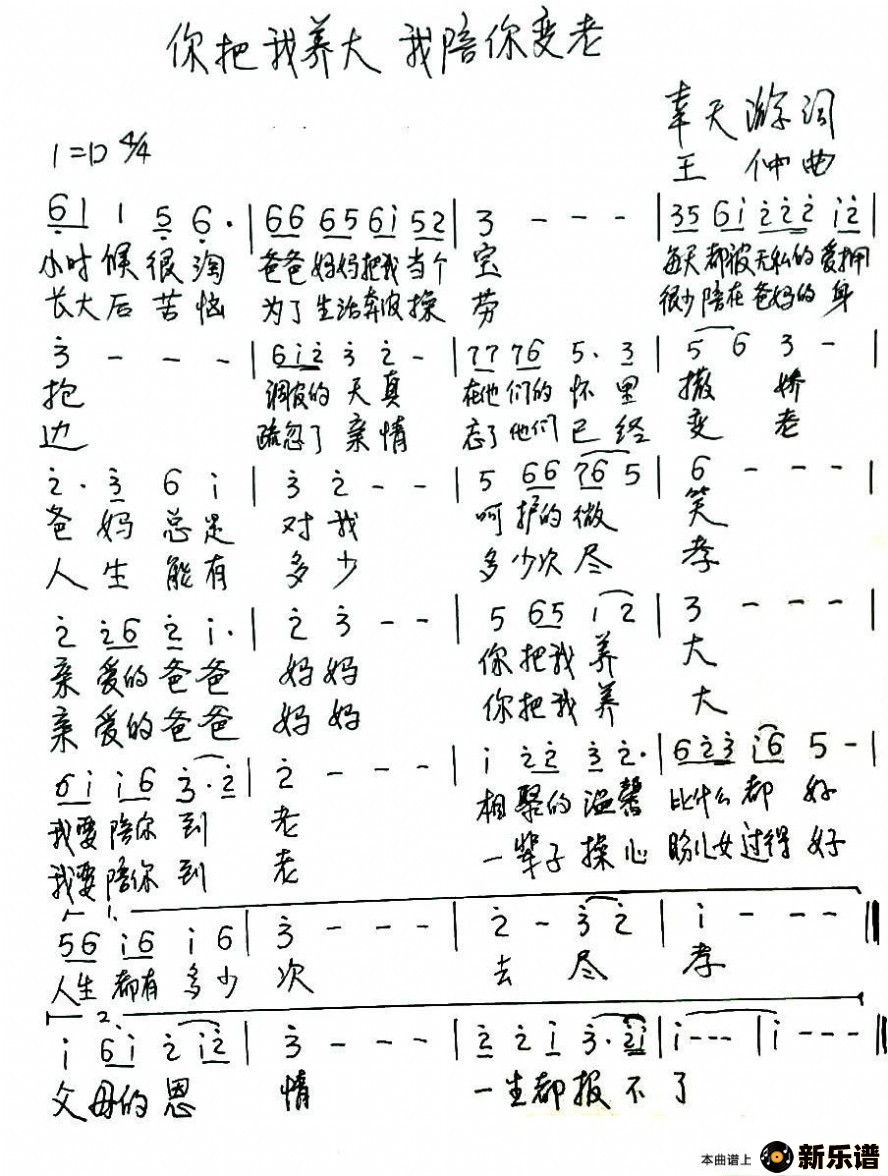 你把我养大 我陪你变老
1=D 4/4
幸天游词
王 仲曲
61 1 5 6. | 66 65 61 52 | 3 - - - | 35 61 222 12
小时候很淘 爸爸妈妈把我当个 宝 每天都被无私的爱拥
长大后苦恼 为了生活奔波操 劳 很少陪在爸妈的身
3 - - - | 612 3 2 - | 77 76 5. 3 | 5 6 3 -
抱 调皮的天真 在他们的怀里 撒 娇
边 疏忽了亲情 忘了他们已经 变 老
2. 3 6 1 | 3 2 - - | 5 66 76 5 | 6 - - -
爸妈总是 对我 呵护的微 笑
人生能有 多少 多少次尽 孝
2 26 2 1. | 2 3 - - | 5 65 1 2 | 3 - - -
亲爱的爸爸 妈妈 你把我养 大
亲爱的爸爸 妈妈 你把我养 大
61 16 3.2 | 2 - - - | 1 22 3 2. | 623 16 5 -
我要陪你到 老 相聚的温馨 比什么都好
我要陪你到 老 一辈子操心 盼儿女过得好
1.
56 16 1 6 | 3 - - - | 2 - 3 2 | 1 - - - ‖
人生都有多少 次 去 尽 孝
2.
1 61 2 12 | 3 - - - | 2 2 1 3. 21 | 1 - - - | 1 - - - ‖
父母的恩 情 一生都报不了
本曲谱上 新乐谱